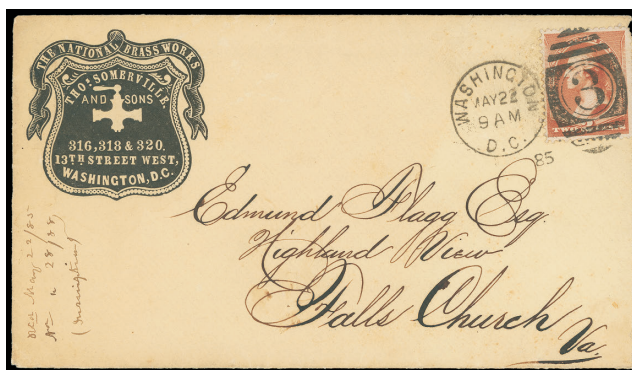 THE NATIONAL BRASS WORKS
THOS SOMERVILLE
AND SONS
316, 318 & 320.
13TH STREET WEST,
WASHINGTON, D.C.
WASHINGTON
MAY 22
9 AM
D.C.
85
3
TWO
Edmund Flagg Esq.
Highland View
Falls Church
Va.
May 22/85
28/85